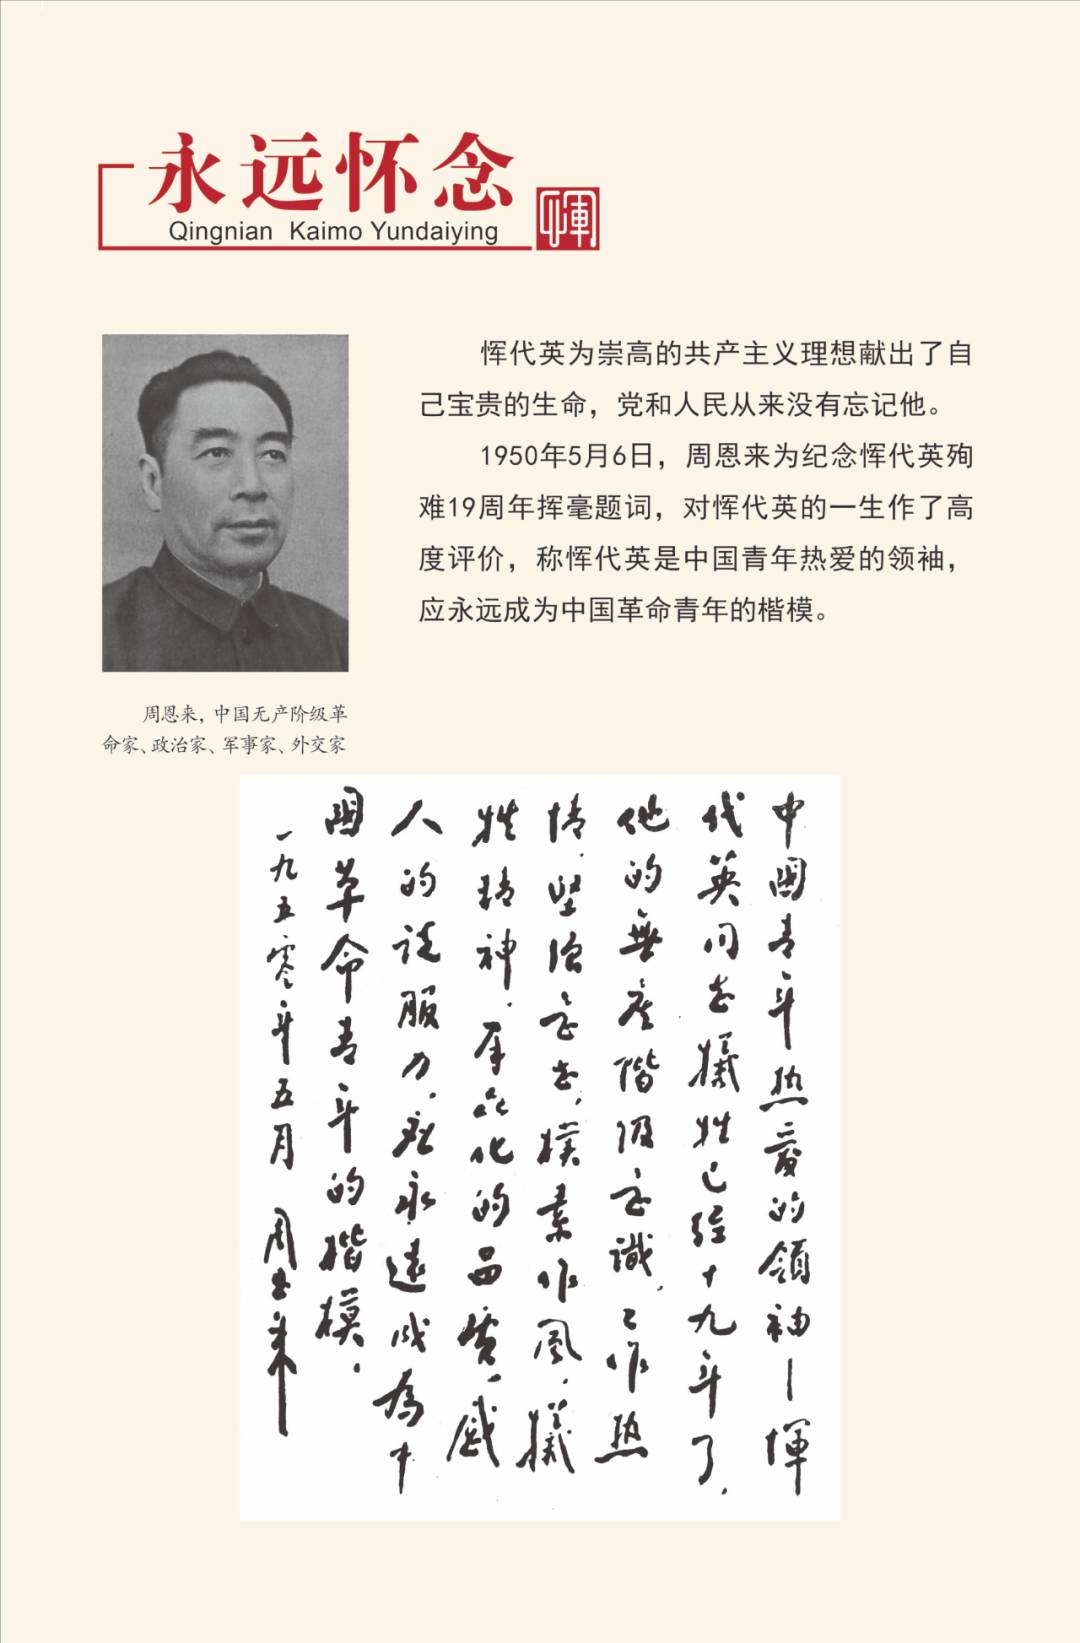 永远怀念
Qingnian Kaimo Yundaiying
恽
恽代英为崇高的共产主义理想献出了自
己宝贵的生命，党和人民从来没有忘记他。
1950年5月6日，周恩来为纪念恽代英殉
难19周年挥毫题词，对恽代英的一生作了高
度评价，称恽代英是中国青年热爱的领袖，
应永远成为中国革命青年的楷模。
周恩来，中国无产阶级革
命家、政治家、军事家、外交家
中國青年热爱的領袖—惲
代英同志犧牲已经十九年了，
他的無产階级意識，工作热
情，坚强意志，樸素作風，犧
牲精神，群众化的品質，感
人的说服力，应永遠成為中
國革命青年的楷模。
一九五零年五月 周恩来